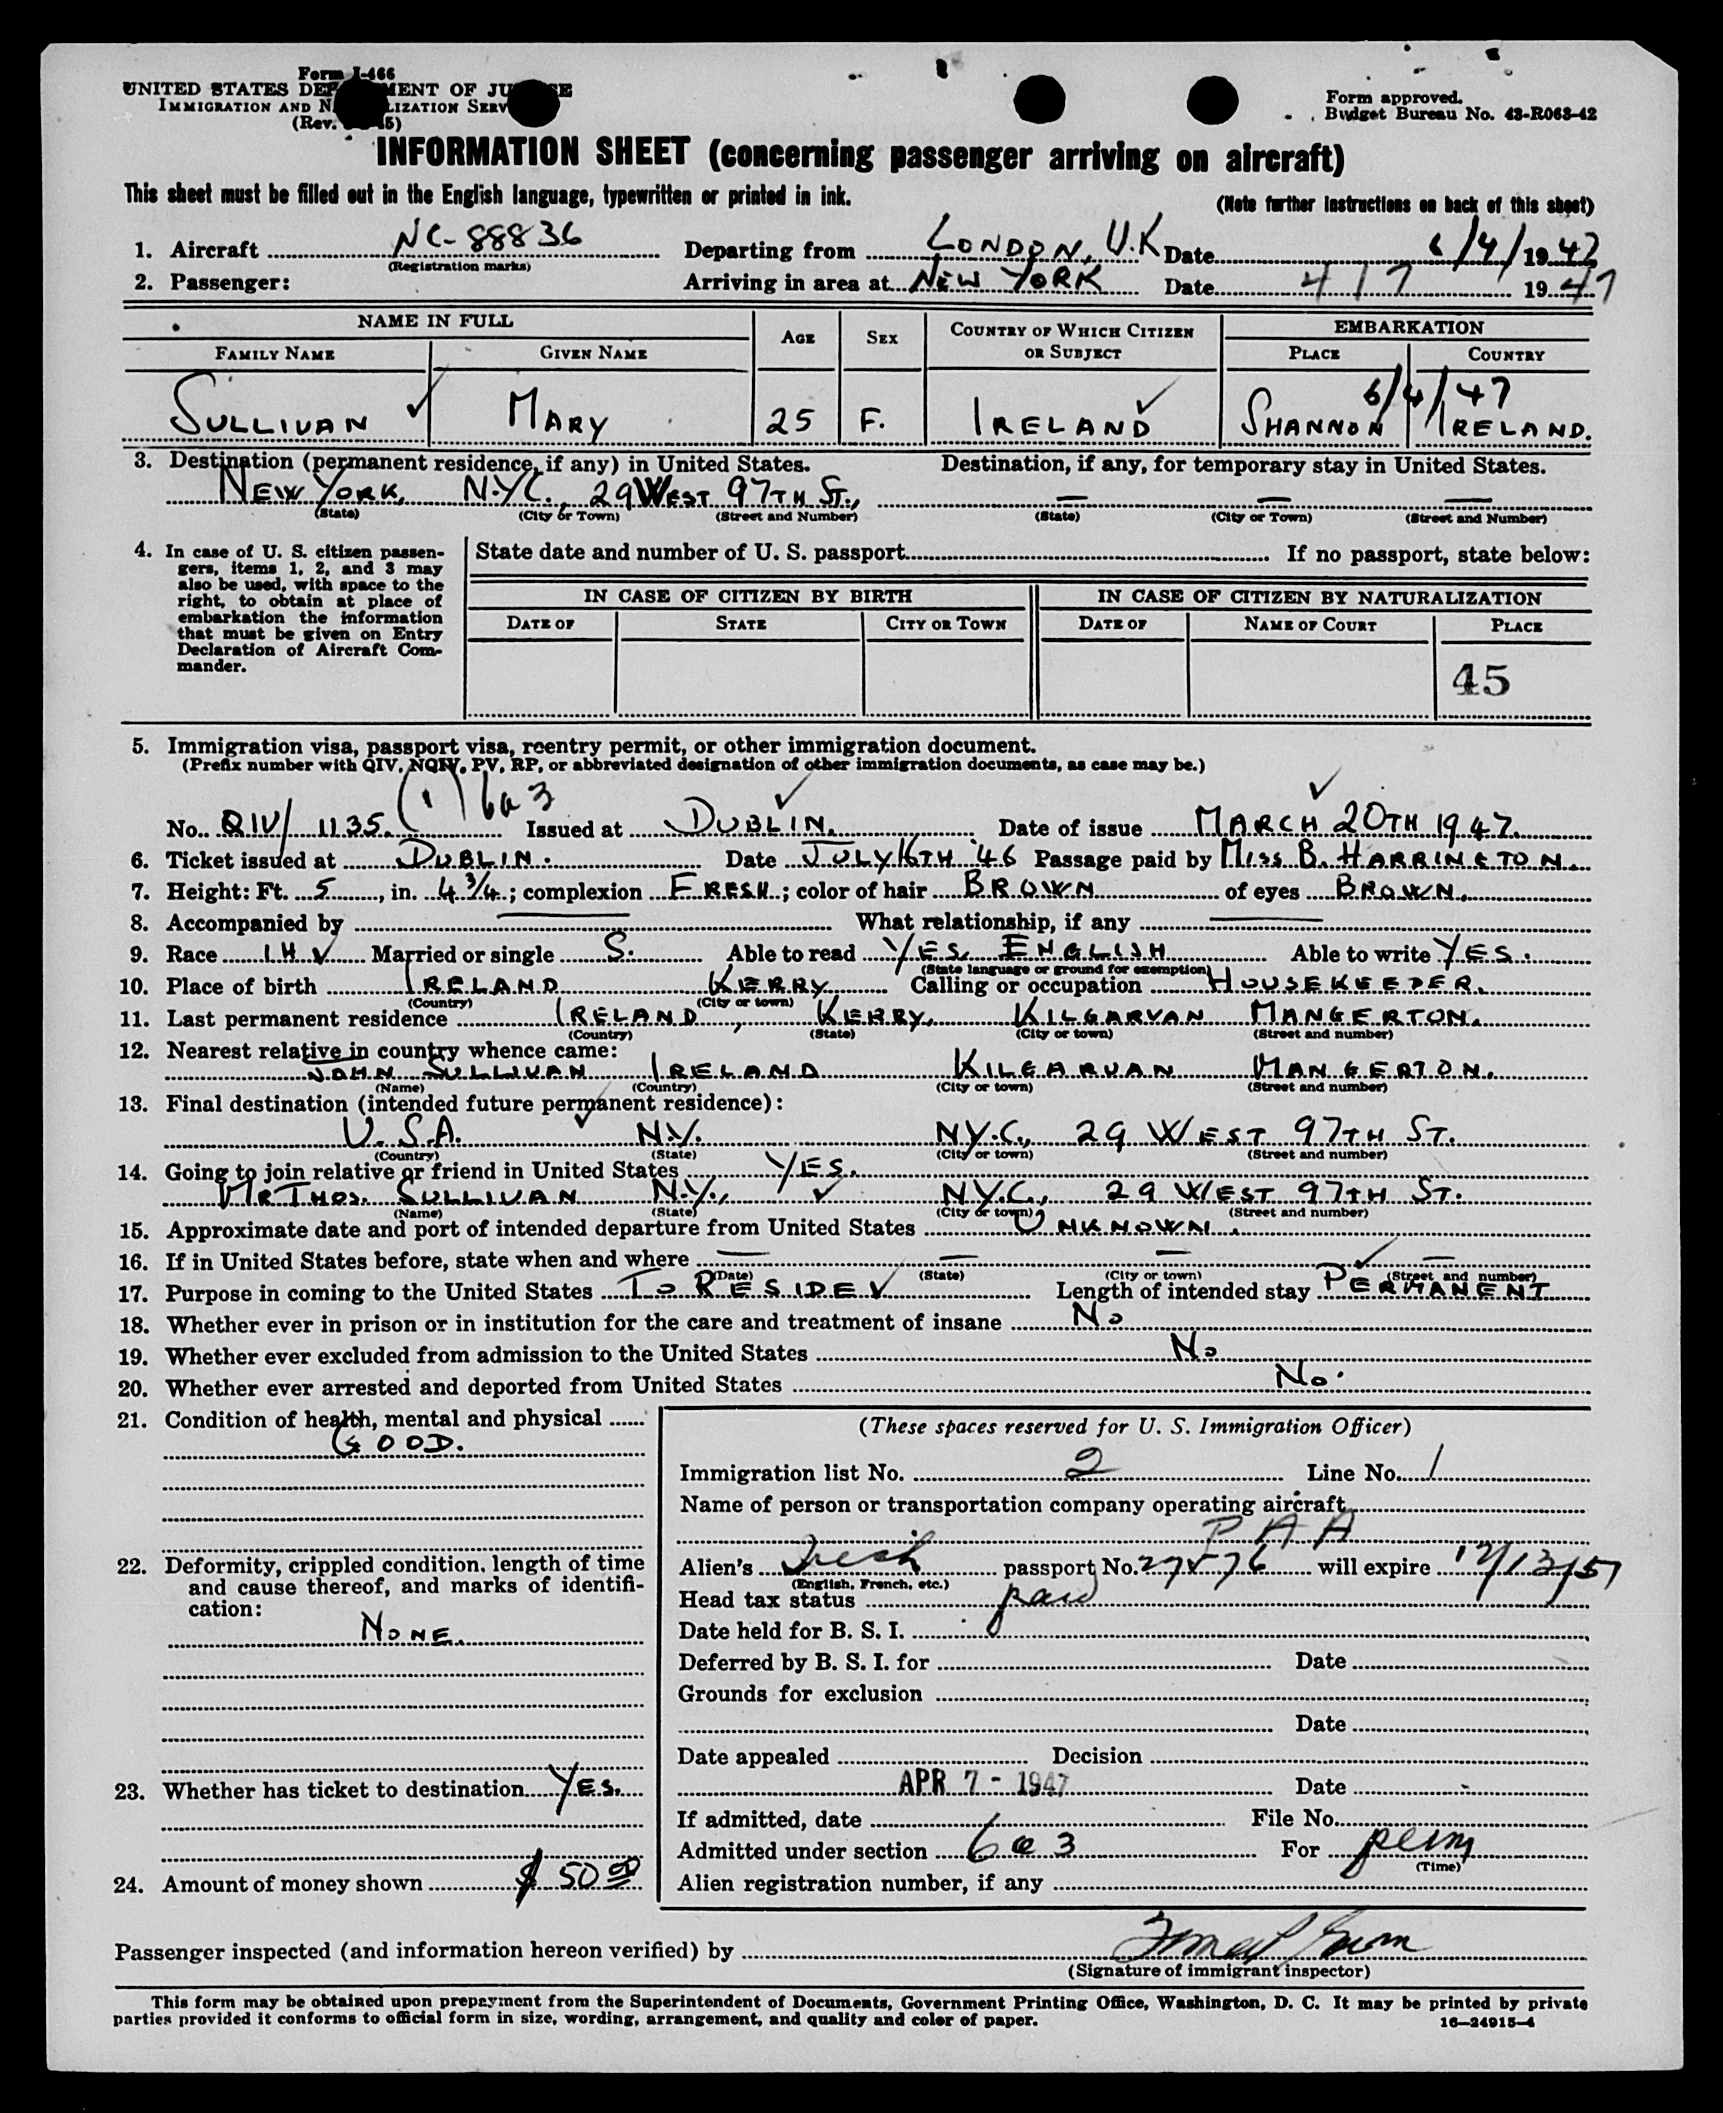 Form I-466
UNITED STATES DEPARTMENT OF JUSTICE
IMMIGRATION AND NATURALIZATION SERVICE
(Rev. 45)
Form approved.
Budget Bureau No. 43-R063-42
INFORMATION SHEET (concerning passenger arriving on aircraft)
This sheet must be filled out in the English language, typewritten or printed in ink.
(Note further instructions on back of this sheet)
1. Aircraft NC-88836 Departing from LONDON, U.K Date 6/4/1947
(Registration marks)
2. Passenger: Arriving in area at NEW YORK Date 4 / 7 1947
NAME IN FULL AGE SEX COUNTRY OF WHICH CITIZEN OR SUBJECT EMBARKATION
FAMILY NAME GIVEN NAME PLACE COUNTRY
6/4/47
SULLIVAN MARY 25 F. IRELAND SHANNON IRELAND.
3. Destination (permanent residence, if any) in United States. Destination, if any, for temporary stay in United States.
NEW YORK, N.Y.C., 29 WEST 97TH ST., — — —
(State) (City or Town) (Street and Number) (State) (City or Town) (Street and Number)
4. In case of U. S. citizen passengers, items 1, 2, and 3 may also be used, with space to the right, to obtain at place of embarkation the information that must be given on Entry Declaration of Aircraft Commander.
State date and number of U. S. passport If no passport, state below:
IN CASE OF CITIZEN BY BIRTH IN CASE OF CITIZEN BY NATURALIZATION
DATE OF STATE CITY OR TOWN DATE OF NAME OF COURT PLACE
45
5. Immigration visa, passport visa, reentry permit, or other immigration document.
(Prefix number with QIV, NQIV, PV, RP, or abbreviated designation of other immigration documents, as case may be.)
(1) 6a3
No. QIV/ 1135. Issued at DUBLIN. Date of issue MARCH 20TH 1947.
6. Ticket issued at DUBLIN. Date JULY 16TH '46 Passage paid by MISS B. HARRINGTON.
7. Height: Ft. 5, in. 4 3/4; complexion FRESH; color of hair BROWN of eyes BROWN.
8. Accompanied by — What relationship, if any —
9. Race IH Married or single S. Able to read YES, ENGLISH Able to write YES.
(State language or ground for exemption)
10. Place of birth IRELAND KERRY Calling or occupation HOUSEKEEPER.
(Country) (City or town)
11. Last permanent residence IRELAND, KERRY, KILGARVAN MANGERTON.
(Country) (State) (City or town) (Street and number)
12. Nearest relative in country whence came:
JOHN SULLIVAN IRELAND KILGARVAN MANGERTON.
(Name) (Country) (City or town) (Street and number)
13. Final destination (intended future permanent residence):
U.S.A. N.Y. N.Y.C., 29 WEST 97TH ST.
(Country) (State) (City or town) (Street and number)
14. Going to join relative or friend in United States YES.
MR THOS. SULLIVAN N.Y., N.Y.C., 29 WEST 97TH ST.
(Name) (State) (City or town) (Street and number)
15. Approximate date and port of intended departure from United States UNKNOWN.
16. If in United States before, state when and where — — — —
(Date) (State) (City or town) (Street and number)
17. Purpose in coming to the United States TO RESIDE Length of intended stay PERMANENT
18. Whether ever in prison or in institution for the care and treatment of insane NO
19. Whether ever excluded from admission to the United States NO
20. Whether ever arrested and deported from United States NO.
21. Condition of health, mental and physical
GOOD.
22. Deformity, crippled condition, length of time and cause thereof, and marks of identification:
NONE.
23. Whether has ticket to destination YES.
24. Amount of money shown $ 50 00
(These spaces reserved for U. S. Immigration Officer)
Immigration list No. 2 Line No. 1
Name of person or transportation company operating aircraft
P A A
Alien's Irish passport No. 27576 will expire 12/13/51
(English, French, etc.)
Head tax status paid
Date held for B. S. I.
Deferred by B. S. I. for Date
Grounds for exclusion
Date
Date appealed Decision
APR 7 - 1947 Date
If admitted, date File No.
Admitted under section 6a3 For perm
(Time)
Alien registration number, if any
Passenger inspected (and information hereon verified) by
(Signature of immigrant inspector)
This form may be obtained upon prepayment from the Superintendent of Documents, Government Printing Office, Washington, D. C. It may be printed by private
parties provided it conforms to official form in size, wording, arrangement, and quality and color of paper.
16—24915-4